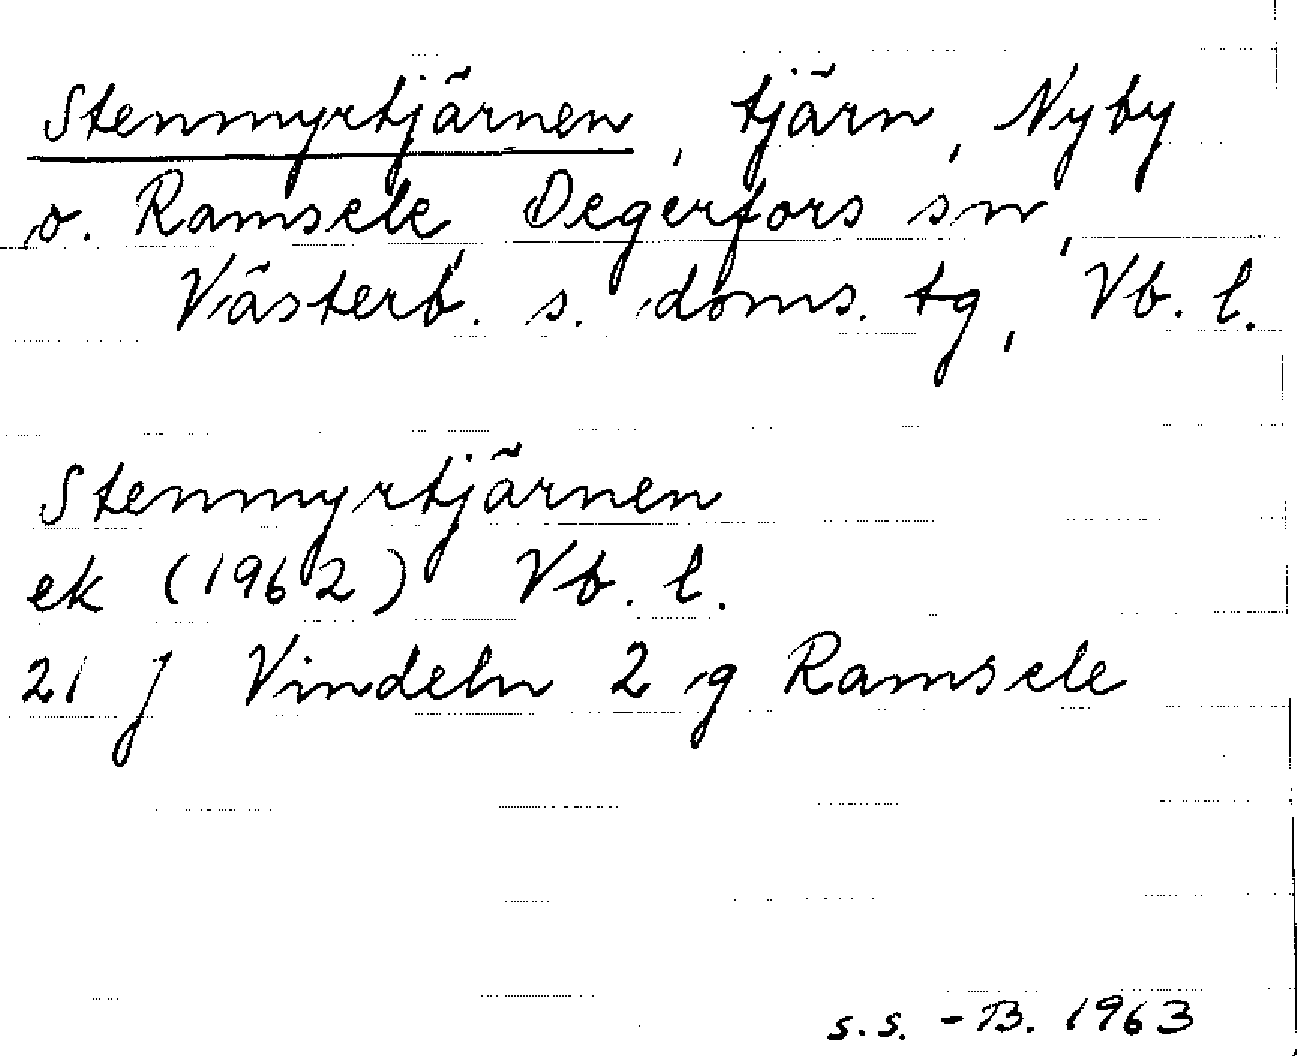 Stenmyrtjärnen, tjärn, Nyby
o. Ramsele, Degerfors sn,
Västerb. s. doms. tg, Vb. l.
Stenmyrtjärnen
ek (1962) Vb. l.
21 J Vindeln 2 g Ramsele
s.s. - B. 1963